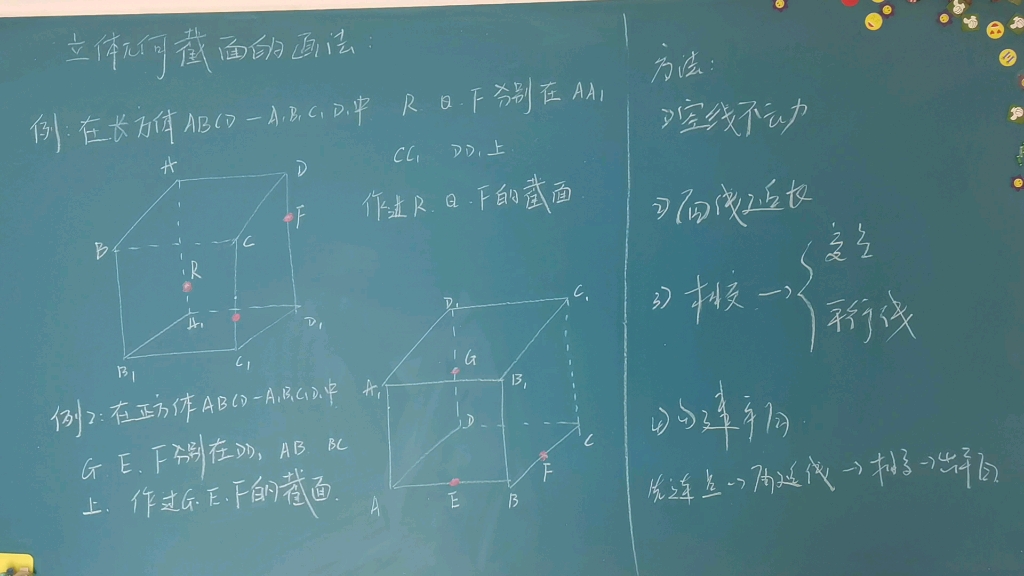 立体几何截面的画法:
例1:在长方体ABCD-A₁B₁C₁D₁中 R.Q.F分别在AA₁
CC₁ DD₁上
作过R.Q.F的截面
A
D
F
B
C
R
A₁
D₁
B₁
C₁
例2:在正方体ABCD-A₁B₁C₁D₁中
G.E.F分别在DD₁ AB BC
上.作过G.E.F的截面.
D₁
C₁
G
A₁
B₁
D
C
F
A
E
B
方法:
1)实线不动
2)两线延长
3)相交→
交点
平行线
先连点→两延线→相交→